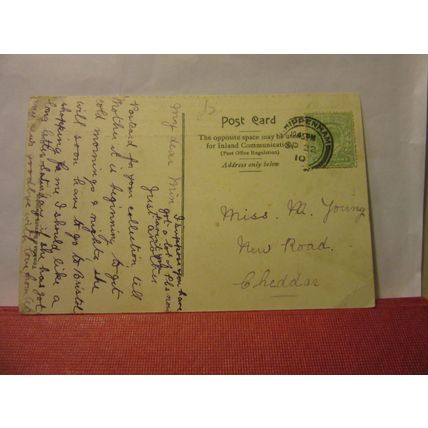 Post Card
The opposite space may be used
for Inland Communication
(Post Office Regulation)
Address only below
CHIPPENHAM
SP 22
10
Miss. M. Young
New Road.
Cheddar
My dear Min
I suppose you have
got a lot of P.Cs now
haven't you
Just another
Postcard for your collection tell
Mother it is beginning to get
cold mornings & nights she
will soon have to go to Bristol
shopping for me I should like a
long
she has got
goodbye with love from